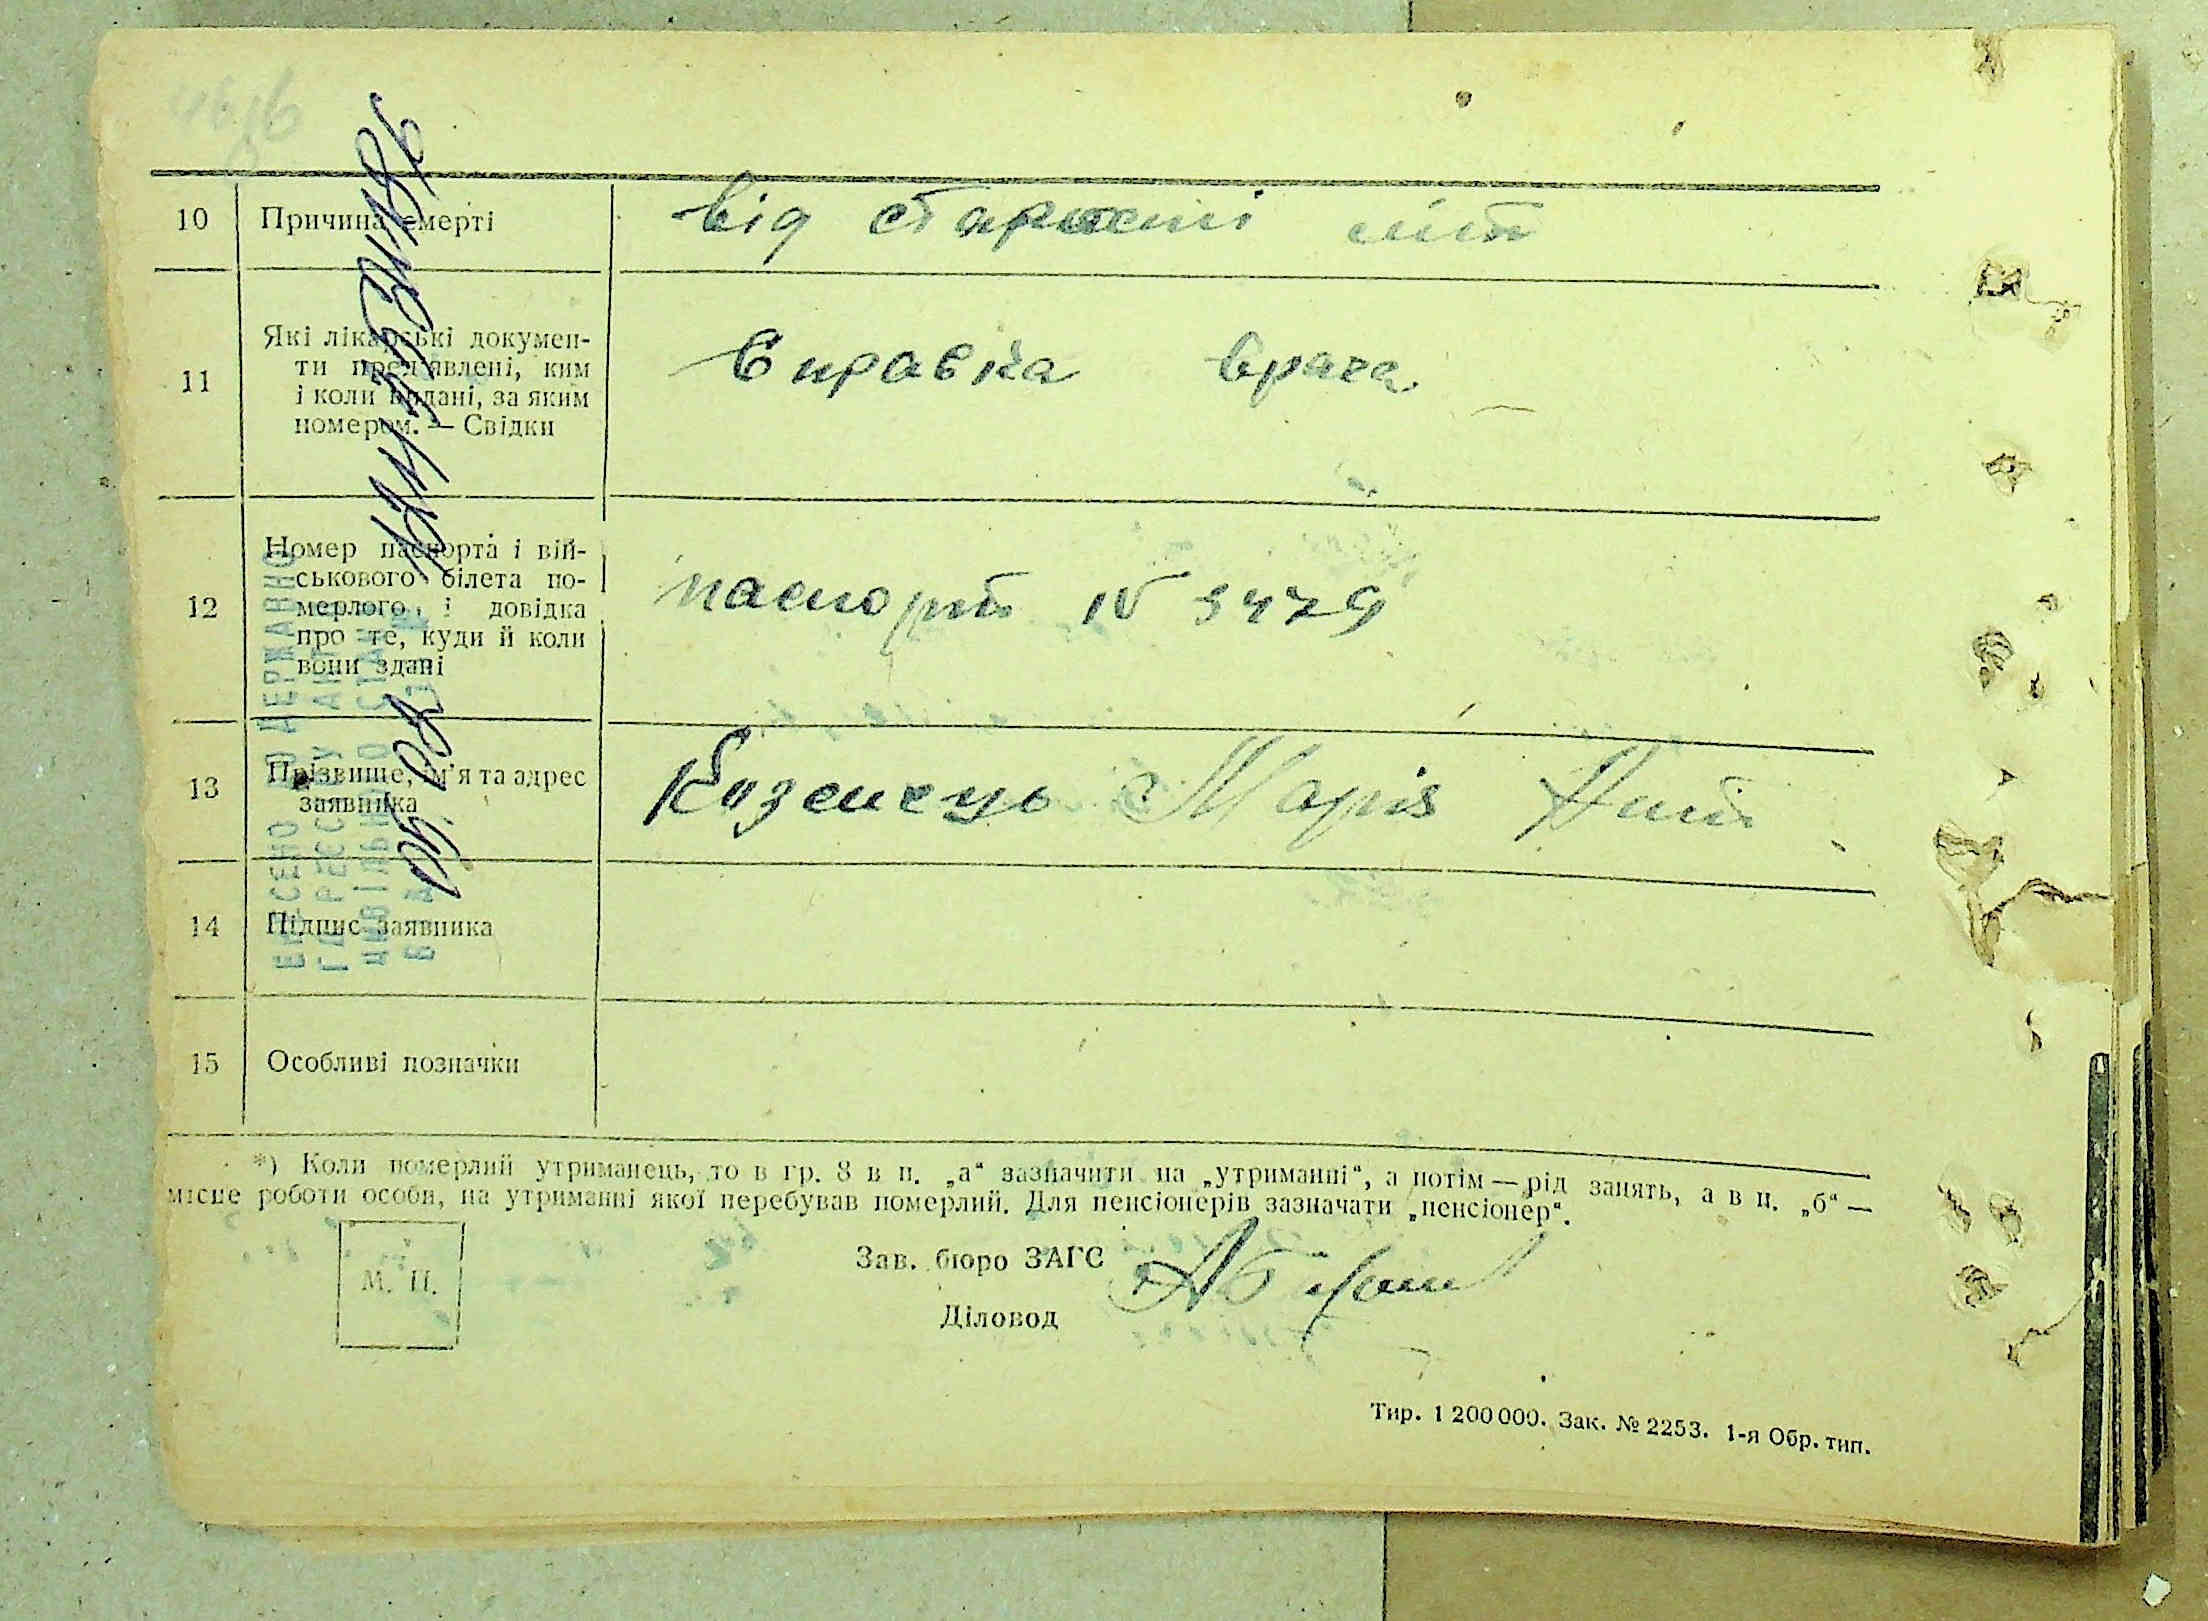 10 Причина смерті від старости літ
11 Які лікарські докумен-
ти пред'явлені, ким
і коли видані, за яким
номером. — Свідки
Справка врача
12 Номер паспорта і вій-
ськового білета по-
мерлого і довідка
про те, куди й коли
вони здані
паспорт № 3479
13 Прізвище, ім'я та адрес
заявника
Марія
14 Підпис заявника
15 Особливі позначки
*) Коли померлий утриманець, то в гр. 8 в п. „а“ зазначити на „утриманні“, а потім — рід занять, а в п. „б“ —
місце роботи особи, на утриманні якої перебував померлий. Для пенсіонерів зазначати „пенсіонер“.
М. П.
Зав. бюро ЗАГС
Діловод
Тир. 1 200 000. Зак. № 2253. 1-я Обр. тип.
ВНЕСЕНО ДО ДЕРЖАВНО
ГО РЕЄСТРУ АКТІВ
ЦИВІЛЬНОГО СТАНУ